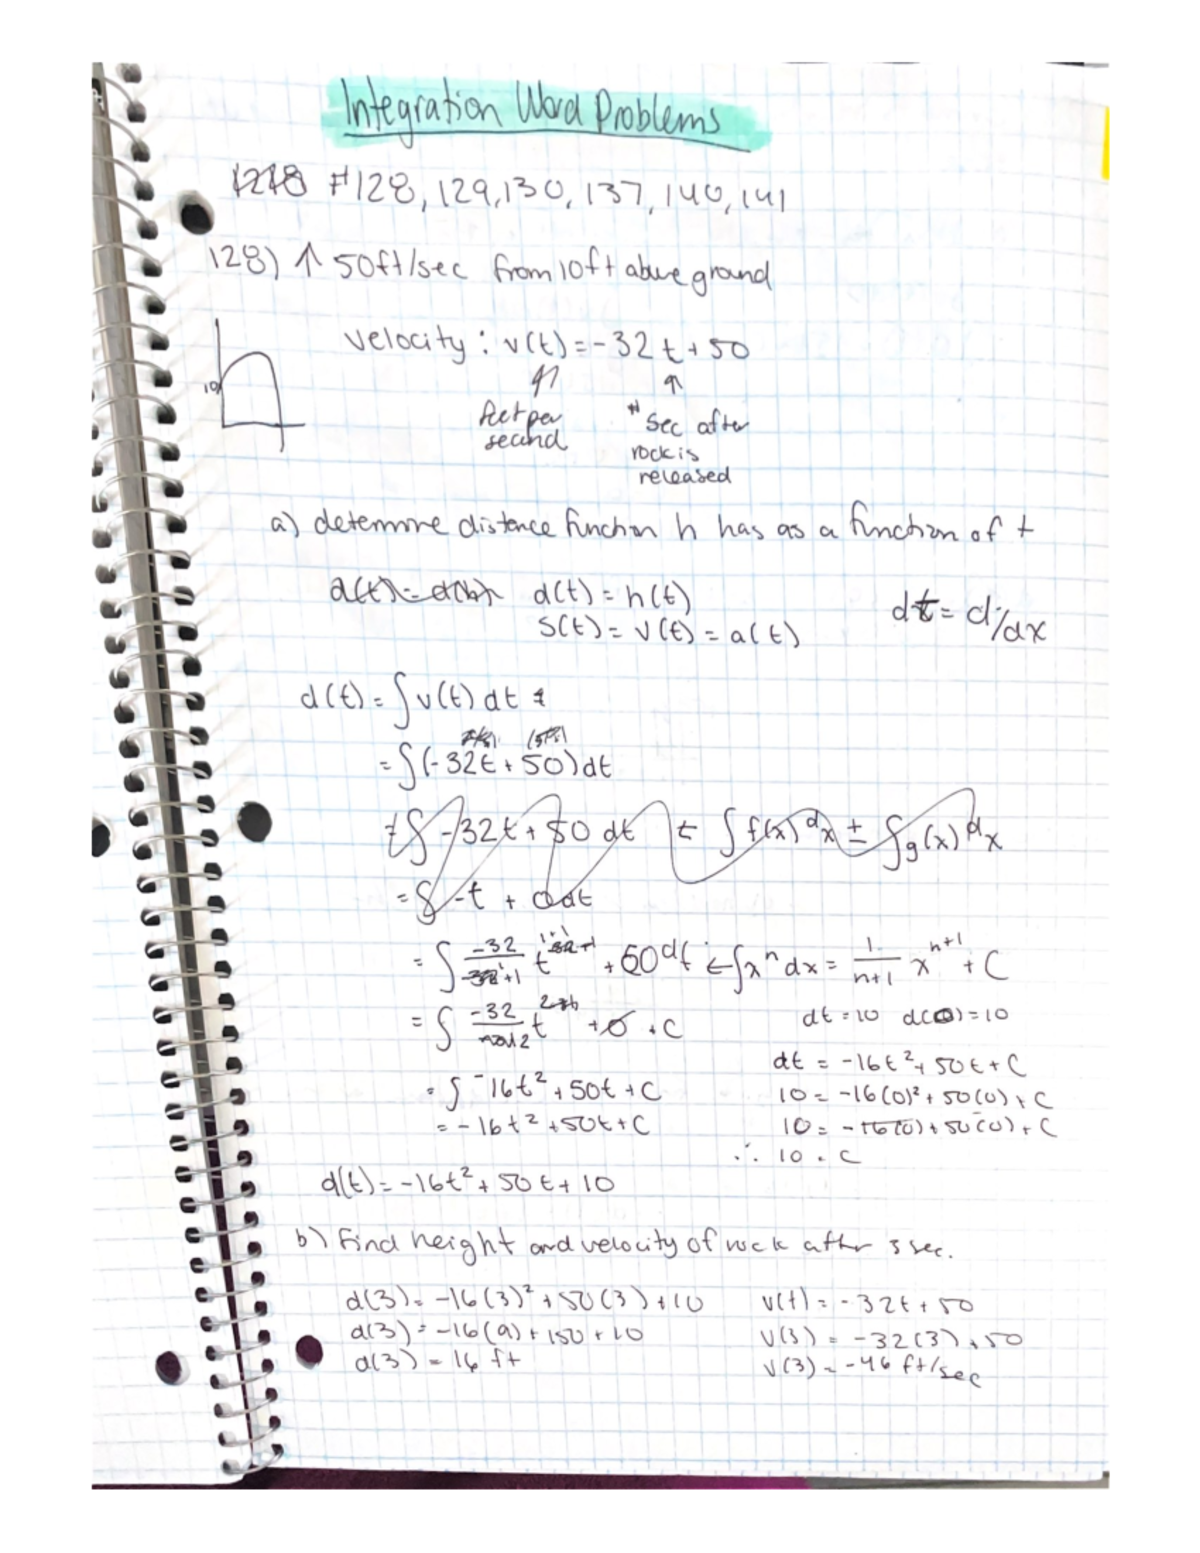 Integration Word Problems
#128, 129, 130, 137, 140, 141
128) ↑ 50ft/sec from 10ft above ground
velocity: v(t) = -32t + 50
10
feet per second
# sec after rock is released
a) determine distance function h has as a function of t
d(t) = h(t)
s(t) = v(t) = a(t)
dt = d/dx
d(t) = ∫v(t) dt
= ∫(-32t + 50)dt
∫ -32t + 50 dt ← ∫f(x)dx ± ∫g(x)dx
= ∫ -t + 0 dt
= ∫ -32/1+1 t^1+1 + 50dt ← ∫x^n dx = 1/n+1 x^n+1 + C
= ∫ -32/2 t^2 + C
dt = 10 d(0) = 10
= ∫ -16t² + 50t + C
= -16t² + 50t + C
dt = -16t² + 50t + C
10 = -16(0)² + 50(0) + C
10 = -16(0) + 50(0) + C
∴ 10 = C
d(t) = -16t² + 50t + 10
b) Find height and velocity of rock after 3 sec.
d(3) = -16(3)² + 50(3) + 10
d(3) = -16(9) + 150 + 10
d(3) = 16 ft
v(t) = -32t + 50
v(3) = -32(3) + 50
v(3) = -46 ft/sec